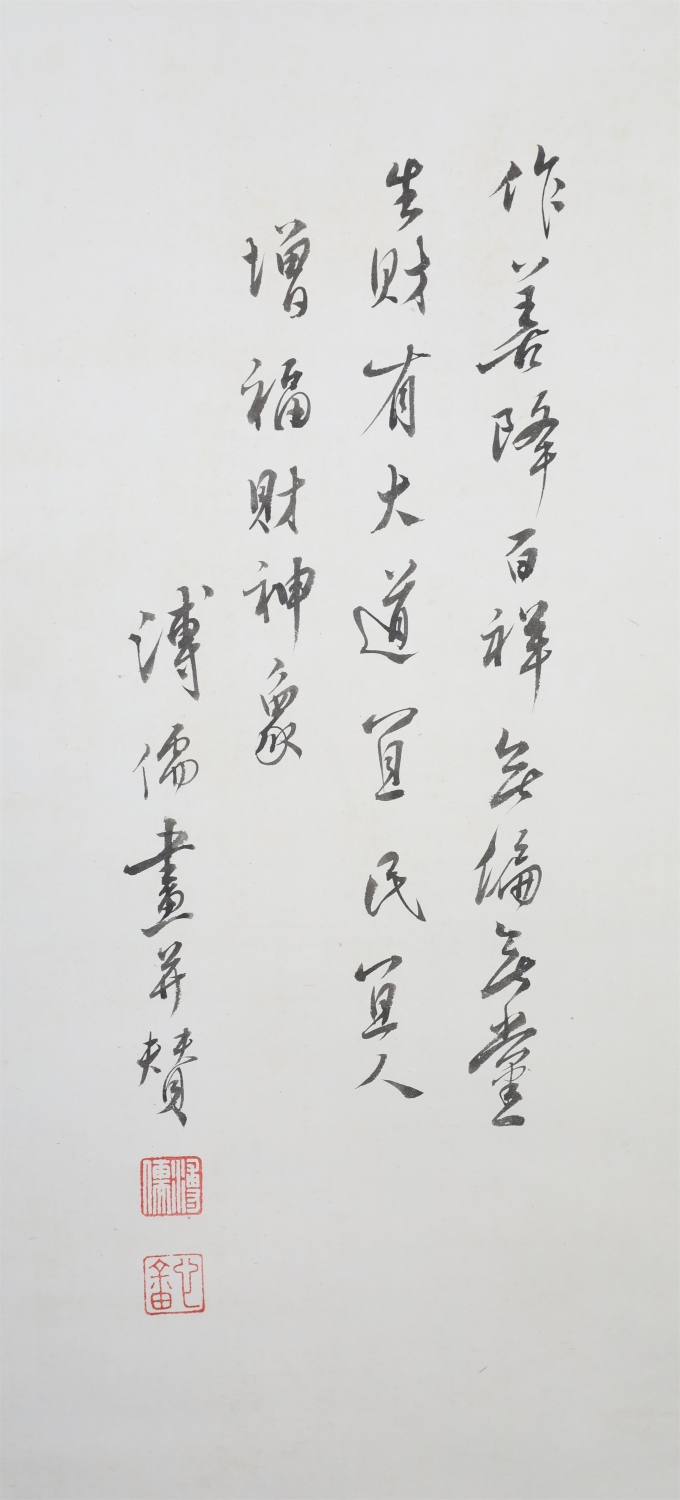 作善降百祥無偏無黨
生財有大道宜民宜人
增福財神象
溥儒畫并賛
溥儒
心畬